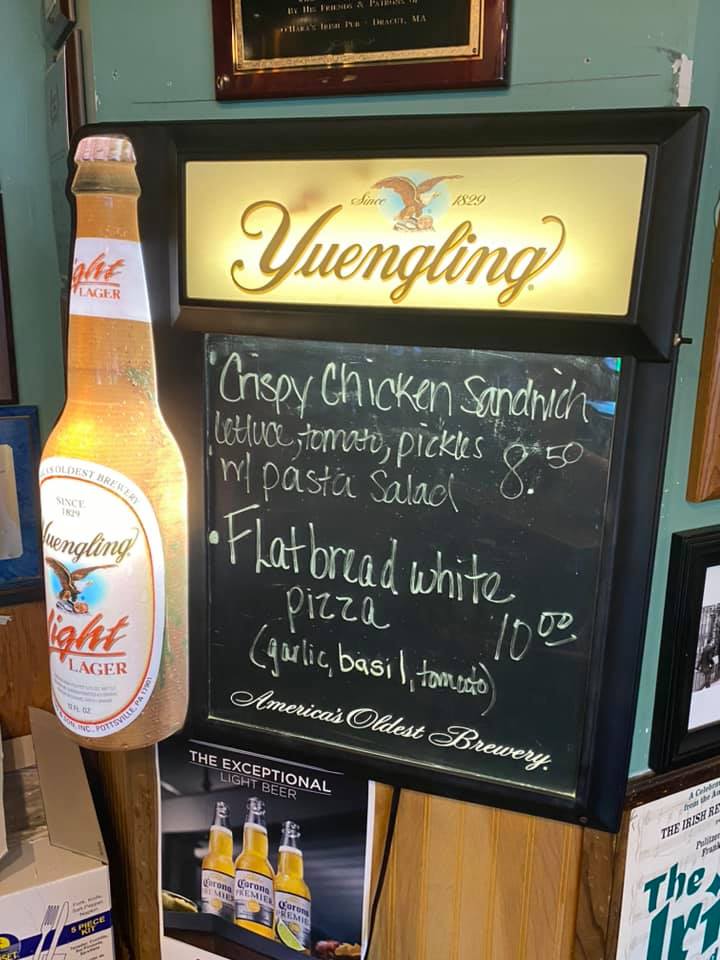 By His Friends & Patrons of
O'Hara's Irish Pub · Dracut, MA
Since 1829
Yuengling
ght
LAGER
• Crispy Chicken Sandwich
lettuce, tomato, pickles 8.50
w/ pasta Salad
• Flatbread white
pizza 10.00
(garlic, basil, tomato)
America's Oldest Brewery.
OLDEST BREWERY
SINCE
1829
Yuengling
Light
LAGER
12 FL. OZ.
INC., POTTSVILLE, PA 17901
THE EXCEPTIONAL
LIGHT BEER
Corona
PREMIER
Corona
PREMIER
Corona
PREMIER
5 PIECE
KIT
A Celebra
from the
THE IRISH RE
The
Iri